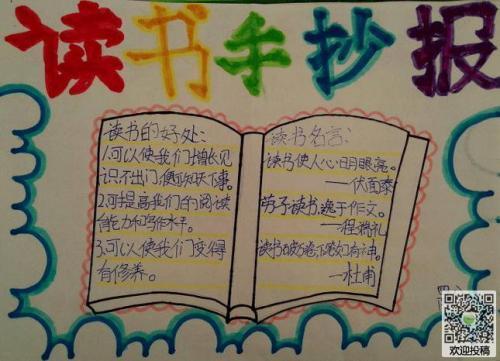 读书手抄报
读书的好处:
1.可以使我们增长见
识不出门,便知天下事。
2.可提高我们的阅读
能力和写作水平。
3.可以使我们变得
有修养。
读书名言:
读书使人心明眼亮。
——伏尔泰
劳于读书,逸于作文。
——程端礼
读书破万卷,下笔如有神。
——杜甫
欢迎投稿